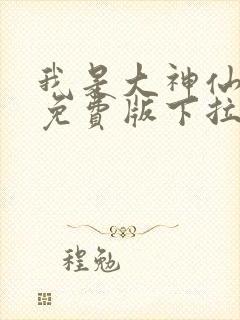 我是大神仙
免費版下拉
程勉